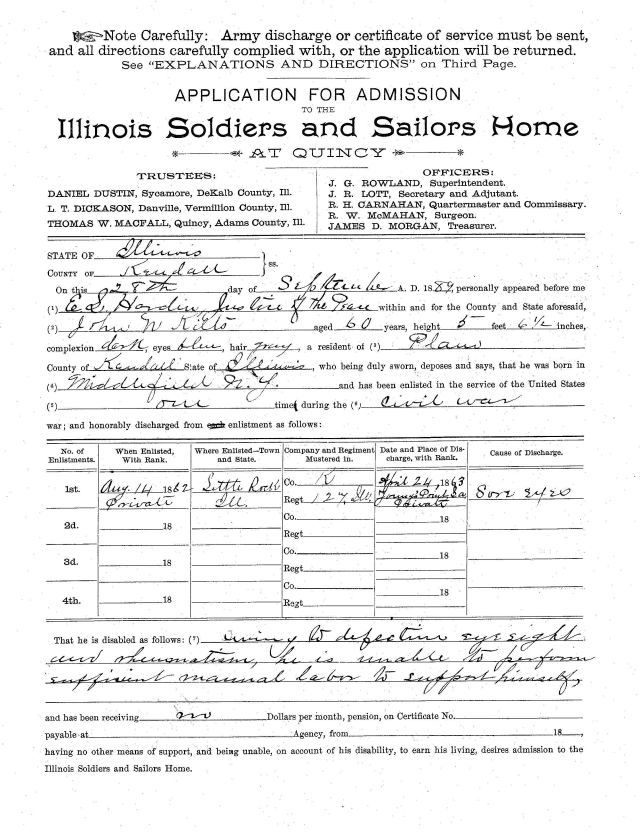 Note Carefully: Army discharge or certificate of service must be sent,
and all directions carefully complied with, or the application will be returned.
See "EXPLANATIONS AND DIRECTIONS" on Third Page.
APPLICATION FOR ADMISSION
TO THE
Illinois Soldiers and Sailors Home
AT QUINCY
TRUSTEES:
DANIEL DUSTIN, Sycamore, DeKalb County, Ill.
L. T. DICKASON, Danville, Vermillion County, Ill.
THOMAS W. MACFALL, Quincy, Adams County, Ill.
OFFICERS:
J. G. ROWLAND, Superintendent.
J. R. LOTT, Secretary and Adjutant.
R. H. CARNAHAN, Quartermaster and Commissary.
R. W. McMAHAN, Surgeon.
JAMES D. MORGAN, Treasurer.
STATE OF Illinois
COUNTY OF Kendall ss.
On this 28th day of September A. D. 1889, personally appeared before me
(1) E. S. Hardin Justice of the Peace within and for the County and State aforesaid,
(2) John W Kelto aged 60 years, height 5 feet 6 1/2 inches,
complexion dark, eyes blue, hair gray, a resident of (3) Plano
County of Kendall State of Illinois, who being duly sworn, deposes and says, that he was born in
(4) Middlefield N.Y. and has been enlisted in the service of the United States
(5) one time during the (6) Civil war
war; and honorably discharged from each enlistment as follows:
No. of Enlistments. When Enlisted, With Rank. Where Enlisted—Town and State. Company and Regiment Mustered in. Date and Place of Discharge, with Rank. Cause of Discharge.
1st. Aug. 14 1862 Little Rock Co. K April 24, 1863 Sore eyes
Private Ill. Regt 127 Ill. Young's Point La
Private
2d. 18 Co. 18
Regt
3d. 18 Co. 18
Regt
4th. 18 Co. 18
Regt
That he is disabled as follows: (7) owing to defective eye sight
and rheumatism, he is unable to perform
sufficient manual labor to support himself,
and has been receiving no Dollars per month, pension, on Certificate No.
payable at Agency, from 18 ,
having no other means of support, and being unable, on account of his disability, to earn his living, desires admission to the
Illinois Soldiers and Sailors Home.